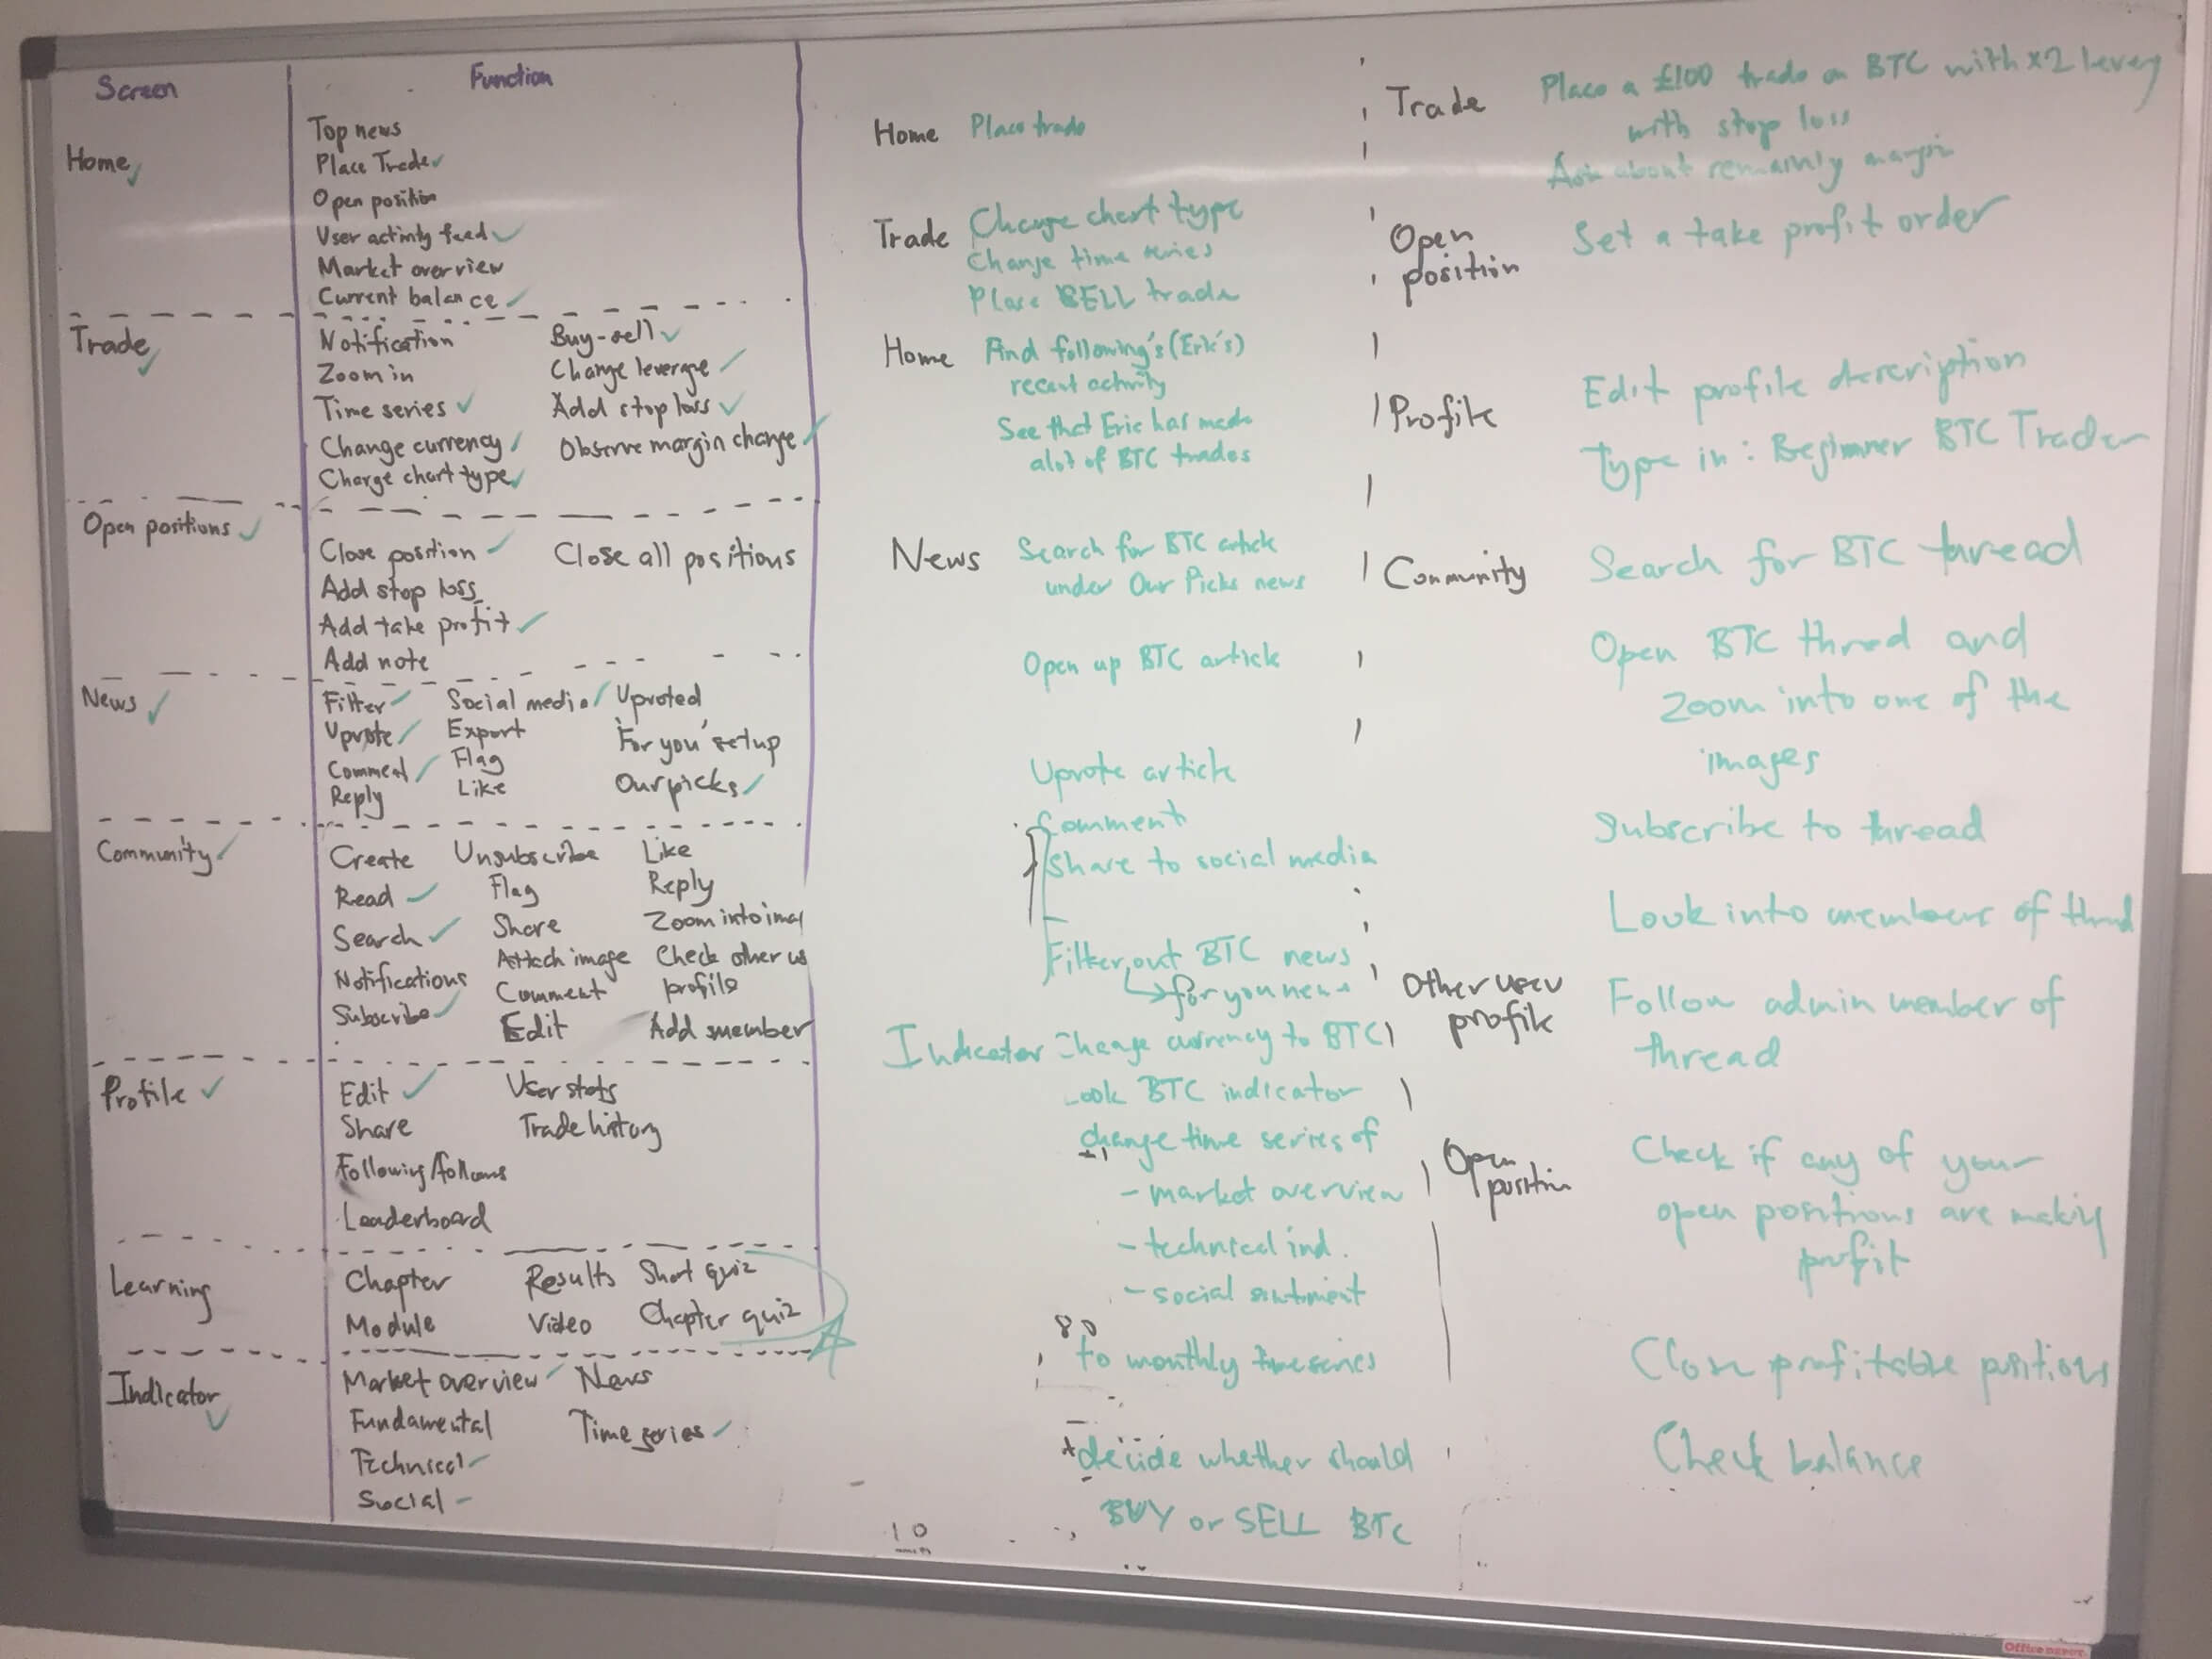 Screen
Function
Home
Top news
Place Trade
Open position
User activity feed
Market overview
Current balance
Trade
Notification
Zoom in
Time series
Change currency
Charge chart type
Buy-sell
Change leverge
Add stop loss
Observe margin change
Open positions
Close position
Add stop loss
Add take profit
Add note
Close all positions
News
Filter
Upvote
Comment
Reply
Social media
Export
Flag
Like
Upvoted
For you' setup
Our picks
Community
Create
Read
Search
Notifications
Subscribe
Unsubscribe
Flag
Share
Attach image
Comment
Edit
Like
Reply
Zoom into imag
Check other us
profile
Add member
Profile
Edit
Share
Following/
Leaderboard
User stats
Trade history
Learning
Chapter
Module
Results
Video
Short quiz
Chapter quiz
Indicator
Market overview
Fundamental
Technical
Social
News
Time series
Home Place trade
Trade Change chart type
Change time series
Place SELL trade
Home Find following's (Erik's)
recent activity
See that Eric has made
alot of BTC trades
News Search for BTC article
under Our Picks news
Open up BTC article
Upvote article
Comment
Share to social media
Filter out BTC news
for you news
Indicator Change currency to BTC
Look BTC indicator
change time series of
- market overview
- technical ind.
- social sentiment
to monthly timeseries
decide whether should
BUY or SELL BTC
10
min
Trade Place a £100 trade on BTC with x2 leverg
with stop loss
Ask about remainly margin
Open
position
Set a take profit order
Profile
Edit profile description
Type in: Beginner BTC Trader
Community Search for BTC thread
Open BTC thred and
zoom into one of the
images
Subscribe to thread
Look into members of thred
Other user
profile
Follow admin member of
thread
Open
position
Check if any of your
open positions are making
profit
Close profitable positions
Check balance
Office DEPOT